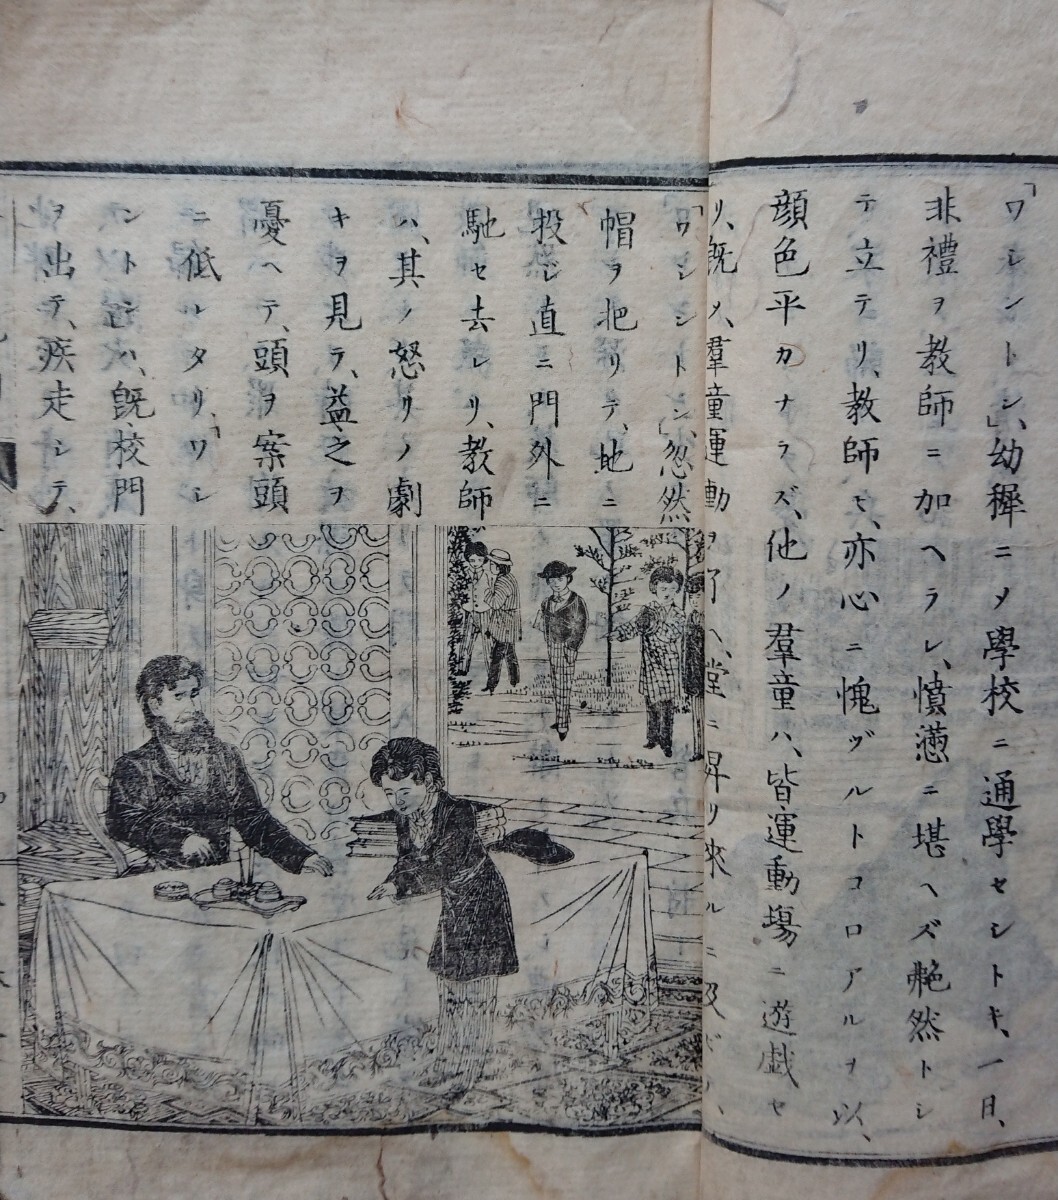 「ワシントン」、幼穉ニ〆學校ニ通學セシトキ、一日、
非禮ヲ教師ニ加ヘラレ、憤懣ニ堪ヘズ艴然トシ
テ立テリ、教師モ、亦心ニ愧ヅルトコロアルヲ以、
顔色平カナラズ、他ノ羣童ハ、皆運動塲ニ遊戯セ
リ、既〆、羣童運動ヲ了ヘ、堂ニ昇リ來ルニ及ビ、
「ワシントン」、忽然
帽ヲ把リテ、地ニ
投ジ直ニ門外ニ
馳セ去レリ、教師
ハ、其ノ怒リノ劇
キヲ見テ、益之ヲ
憂ヘテ、頭ヲ案頭
ニ低ルタリ、「ワシ
ントン」ハ、既校門
ヲ出テ、疾走シテ、